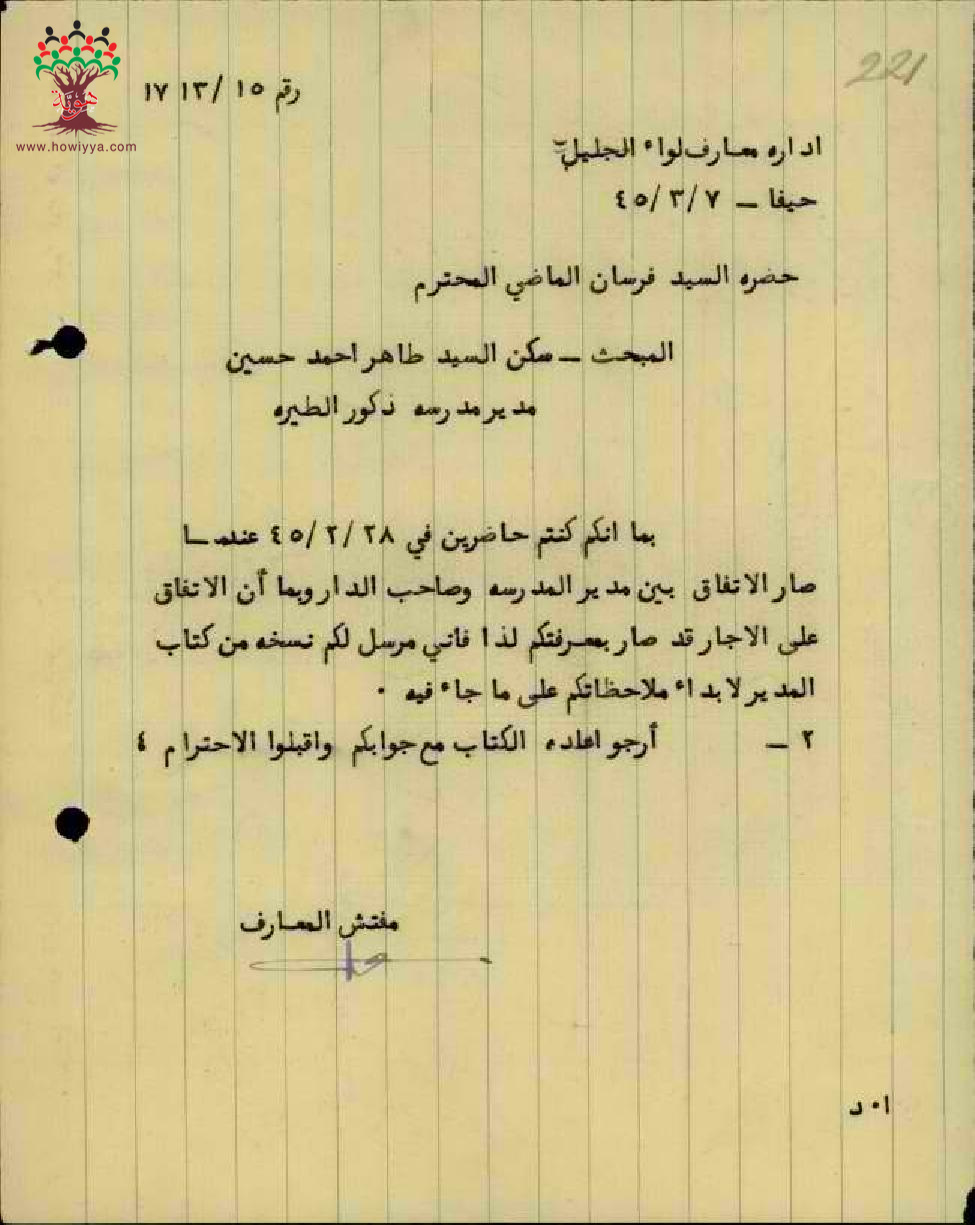 هوية
www.howiyya.com
221
رقم ١٥ /١٣ ١٧
اداره معارف لواء الجليل
حيفا – ٤٥/٣/٧
حضره السيد فرسان الماضي المحترم
المبحث – سكن السيد طاهر احمد حسين
مدير مدرسه ذكور الطيره
بما انكم كنتم حاضرين في ٤٥/٢/٢٨ عندما
صار الاتفاق بين مدير المدرسه وصاحب الدار وبما أن الاتفاق
على الاجار قد صار بمعرفتكم لذا فاني مرسل لكم نسخه من كتاب
المدير لابداء ملاحظاتكم على ما جاء فيه ٠
٢ – أرجو اعاده الكتاب مع جوابكم واقبلوا الاحترام ٤
مفتش المعارف
ا٠د